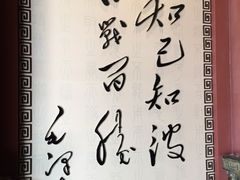 知己知彼
百戰百勝
毛泽